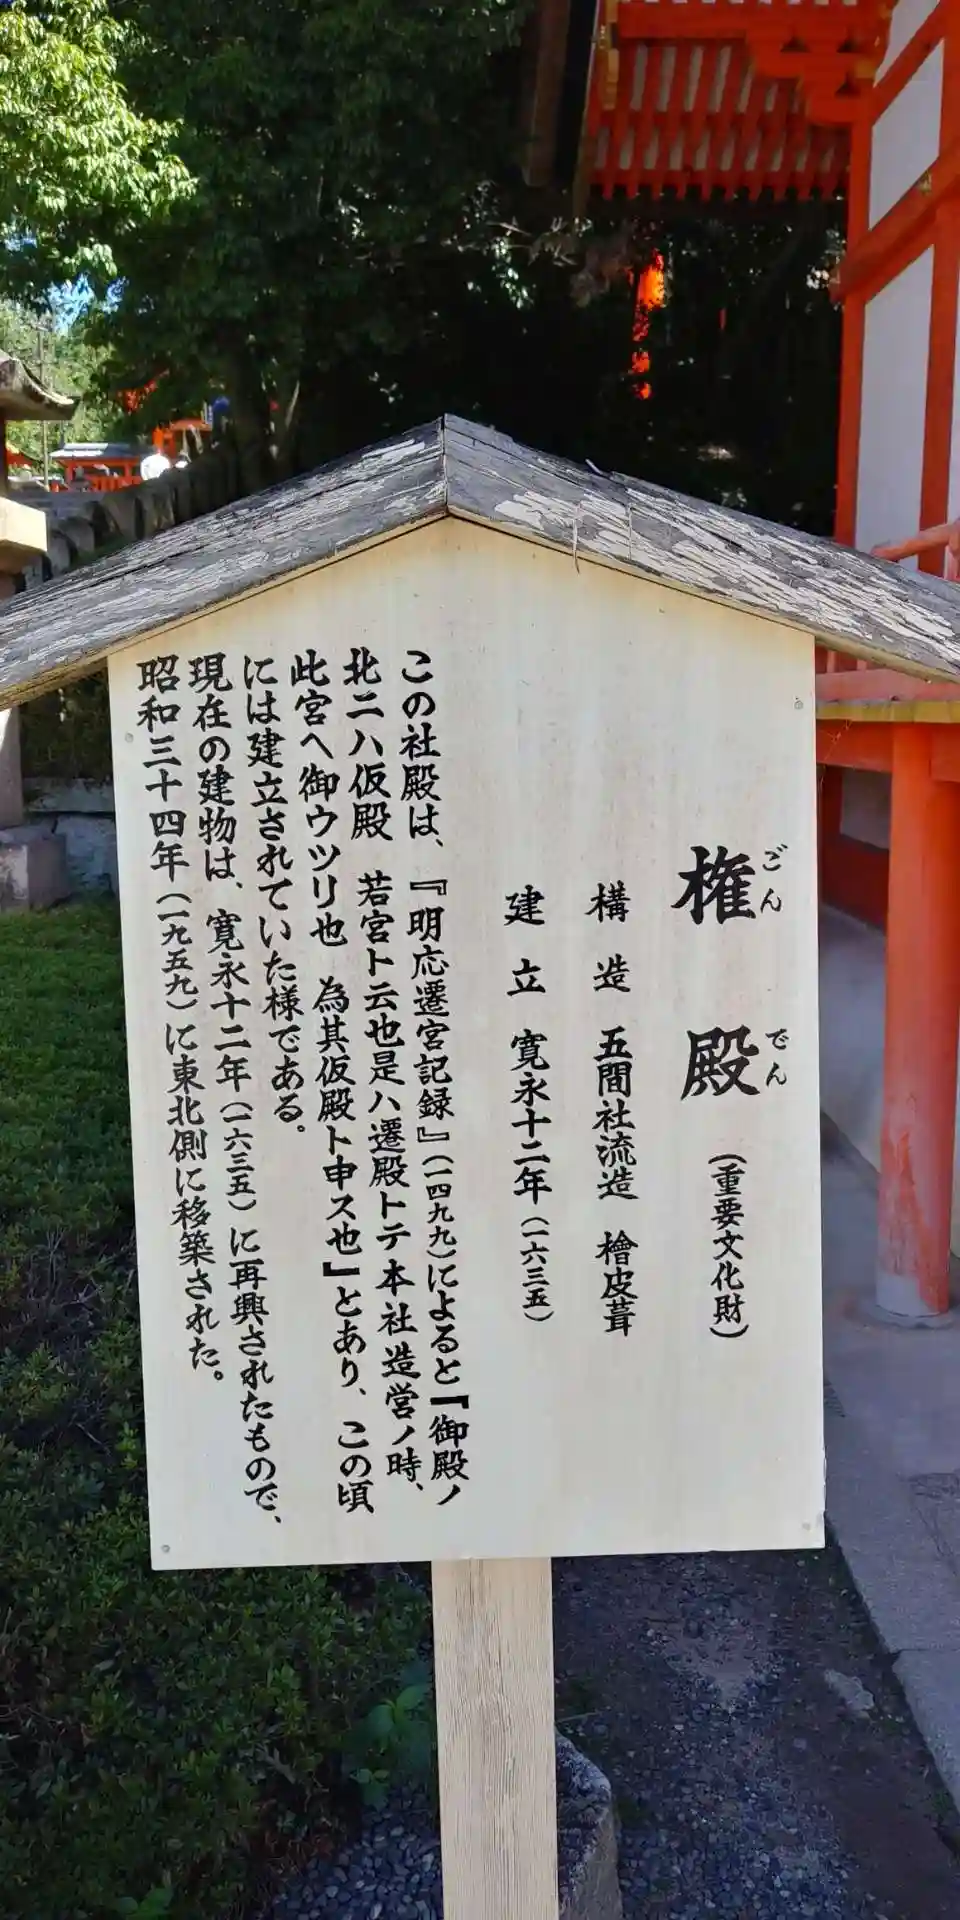 権殿（重要文化財）
ごんでん
構造 五間社流造 檜皮葺
建立 寛永十二年（一六三五）
この社殿は、『明応遷宮記録』（一四九九）によると『御殿ノ
北ニハ仮殿 若宮ト云也是ハ遷殿トテ本社造営ノ時、
此宮ヘ御ウツリ也 為其仮殿ト申ス也』とあり、この頃
には建立されていた様である。
現在の建物は、寛永十二年（一六三五）に再興されたもので、
昭和三十四年（一九五九）に東北側に移築された。